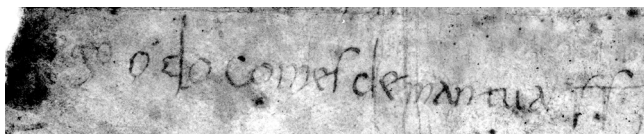 go odo comes de mantua ſſ